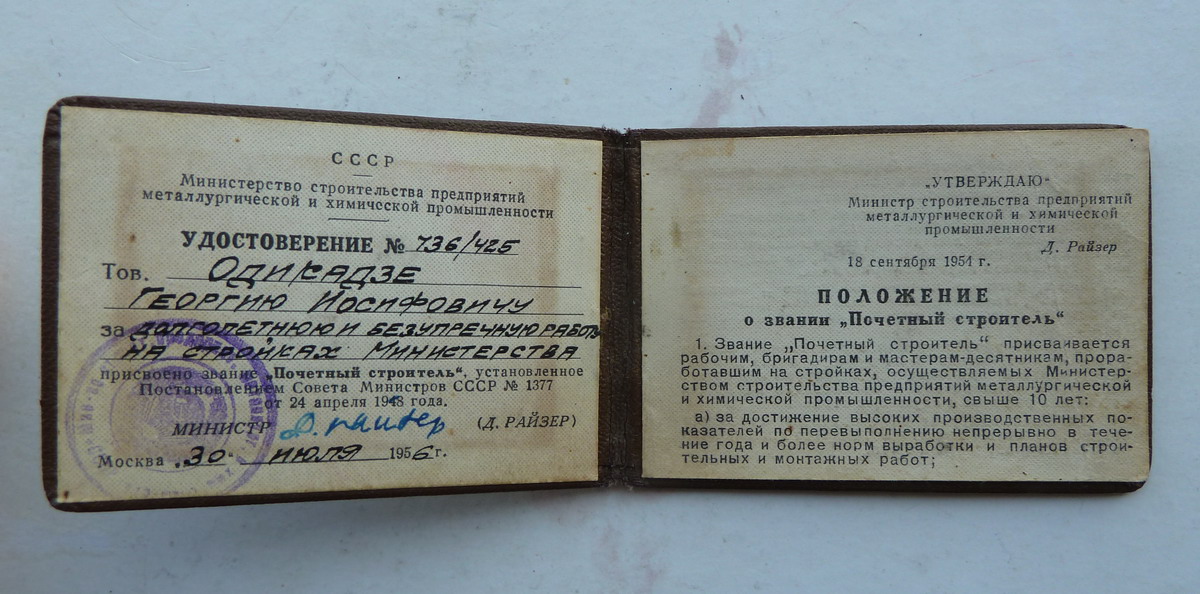 СССР
Министерство строительства предприятий
металлургической и химической промышленности
УДОСТОВЕРЕНИЕ № 736/425
Тов. Одикадзе
Георгию Иосифовичу
за долголетнюю и безупречную работу
на стройках Министерства
присвоено звание „Почетный строитель“, установленное
Постановлением Совета Министров СССР № 1377
от 24 апреля 1948 года.
МИНИСТР Д. Райзер (Д. РАЙЗЕР)
Москва „30“ июля 1956 г.
„УТВЕРЖДАЮ“
Министр строительства предприятий
металлургической и химической
промышленности
Д. Райзер
18 сентября 1954 г.
ПОЛОЖЕНИЕ
о звании „Почетный строитель“
1. Звание „Почетный строитель“ присваивается
рабочим, бригадирам и мастерам-десятникам, прора-
ботавшим на стройках, осуществляемых Министер-
ством строительства предприятий металлургической
и химической промышленности, свыше 10 лет:
а) за достижение высоких производственных по-
казателей по перевыполнению непрерывно в тече-
ние года и более норм выработки и планов строи-
тельных и монтажных работ;